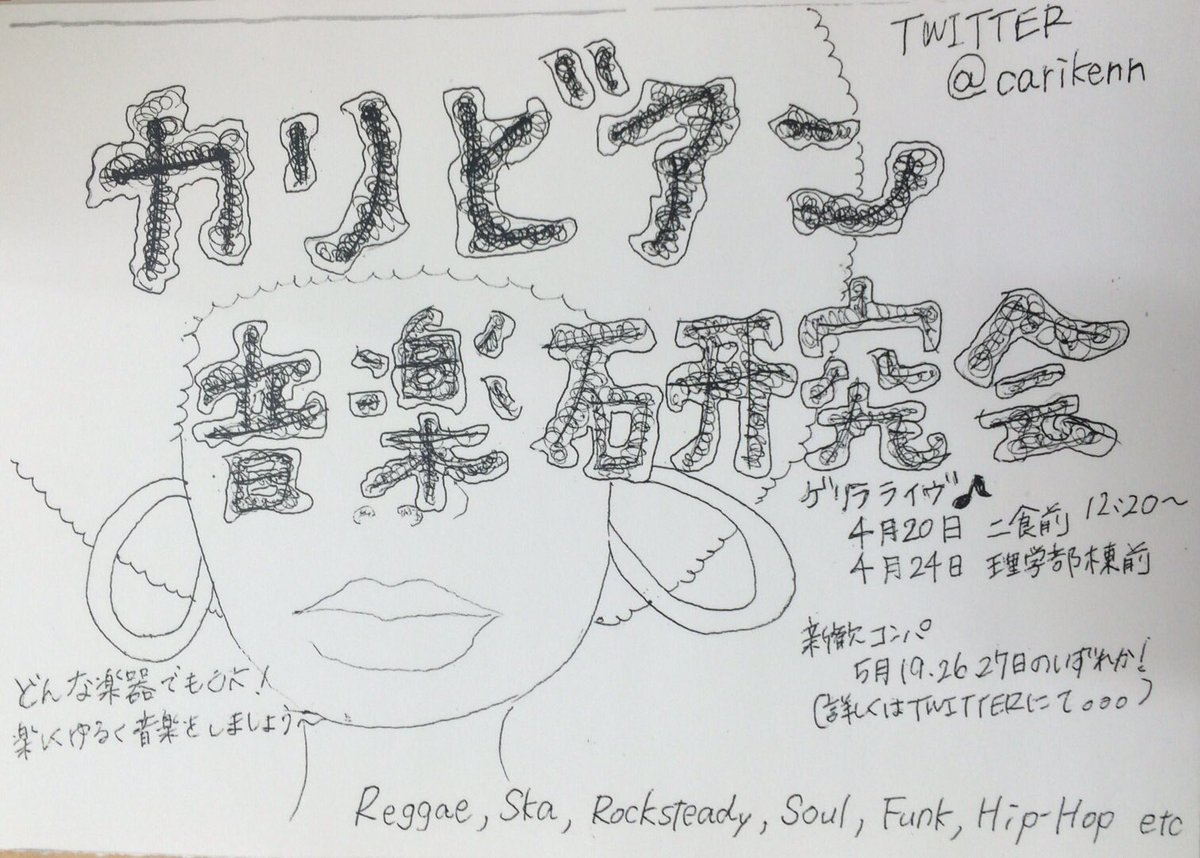 TWITTER
@carikenn
カリビアン
音楽研究会
ゲリラライヴ♪
4月20日 二食前 12:20〜
4月24日 理学部棟前
新歓コンパ
5月19.26.27日のいずれか!
(詳しくはTWITTERにて。。。)
どんな楽器でもOK!
楽しくゆるく音楽をしましょう〜
Reggae, Ska, Rocksteady, Soul, Funk, Hip-Hop etc